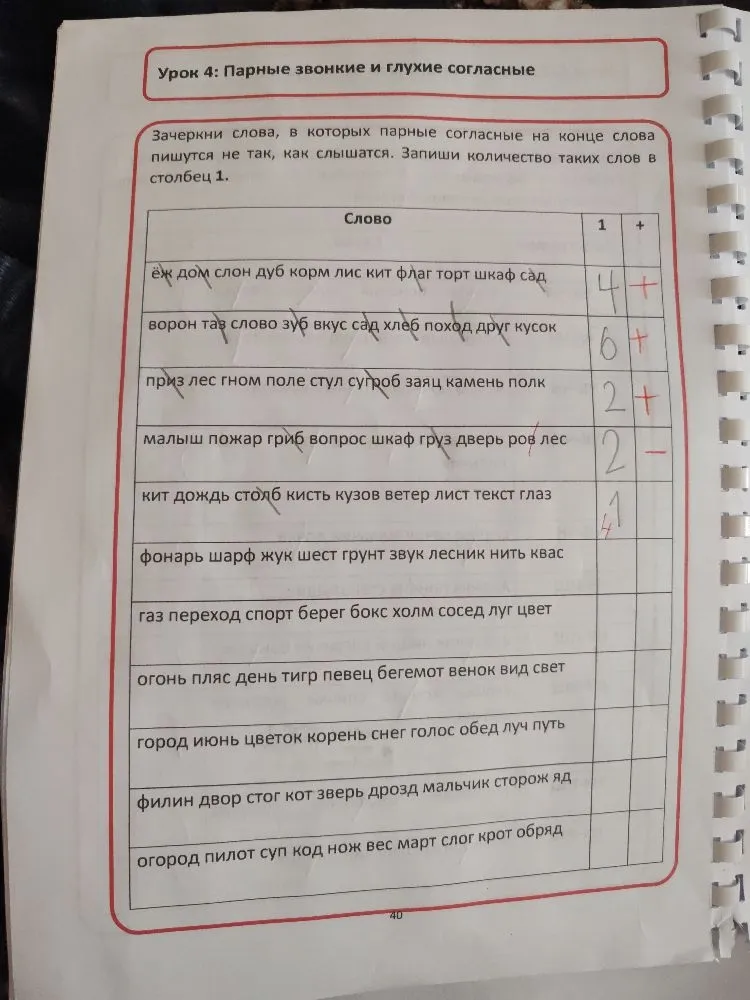 Урок 4: Парные звонкие и глухие согласные
Зачеркни слова, в которых парные согласные на конце слова
пишутся не так, как слышатся. Запиши количество таких слов в
столбец 1.
Слово 1 +
ёж дом слон дуб корм лис кит флаг торт шкаф сад 4 +
ворон таз слово зуб вкус сад хлеб поход друг кусок 6 +
приз лес гном поле стул сугроб заяц камень полк 2 +
малыш пожар гриб вопрос шкаф груз дверь ров лес 2 -
кит дождь столб кисть кузов ветер лист текст глаз 1 4
фонарь шарф жук шест грунт звук лесник нить квас
газ переход спорт берег бокс холм сосед луг цвет
огонь пляс день тигр певец бегемот венок вид свет
город июнь цветок корень снег голос обед луч путь
филин двор стог кот зверь дрозд мальчик сторож яд
огород пилот суп код нож вес март слог крот обряд
40